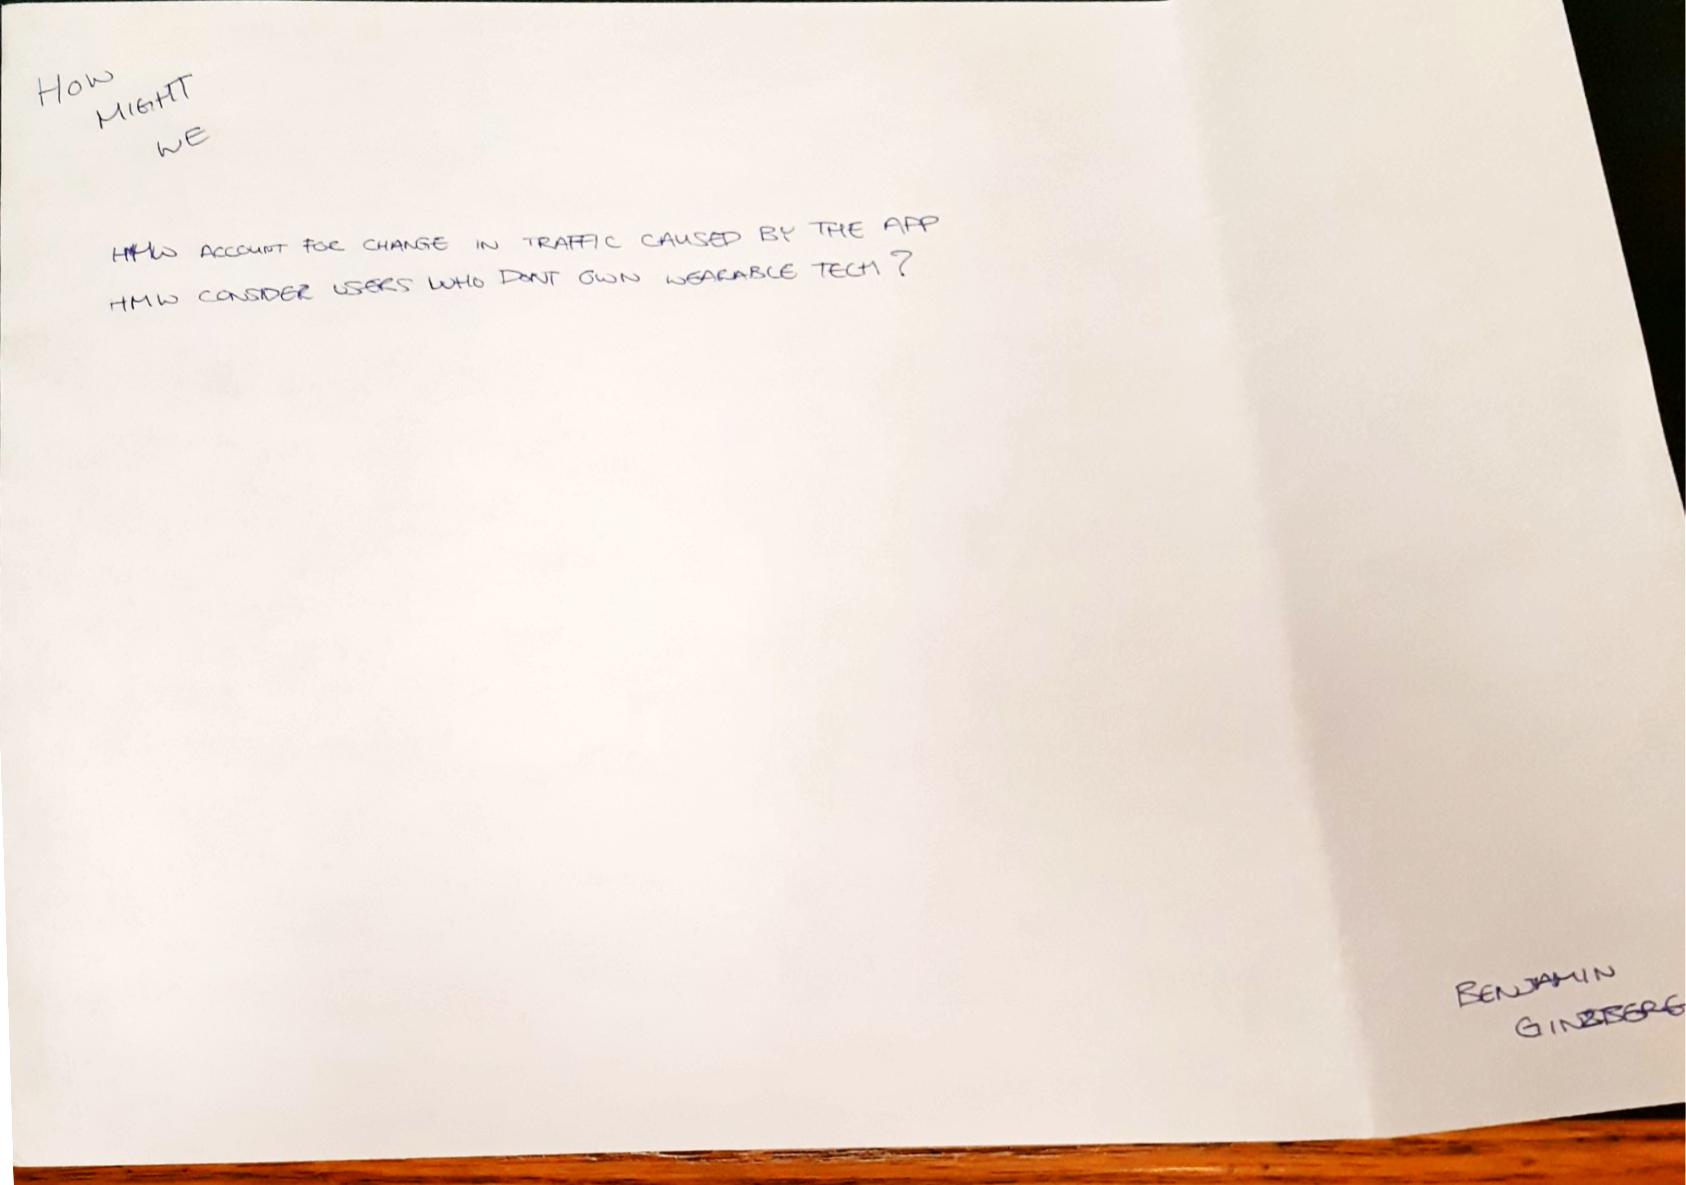 HOW
MIGHT
WE
HMW ACCOUNT FOR CHANGE IN TRAFFIC CAUSED BY THE APP
HMW CONSIDER USERS WHO DONT OWN WEARABLE TECH?
BENJAMIN
GINSBERG